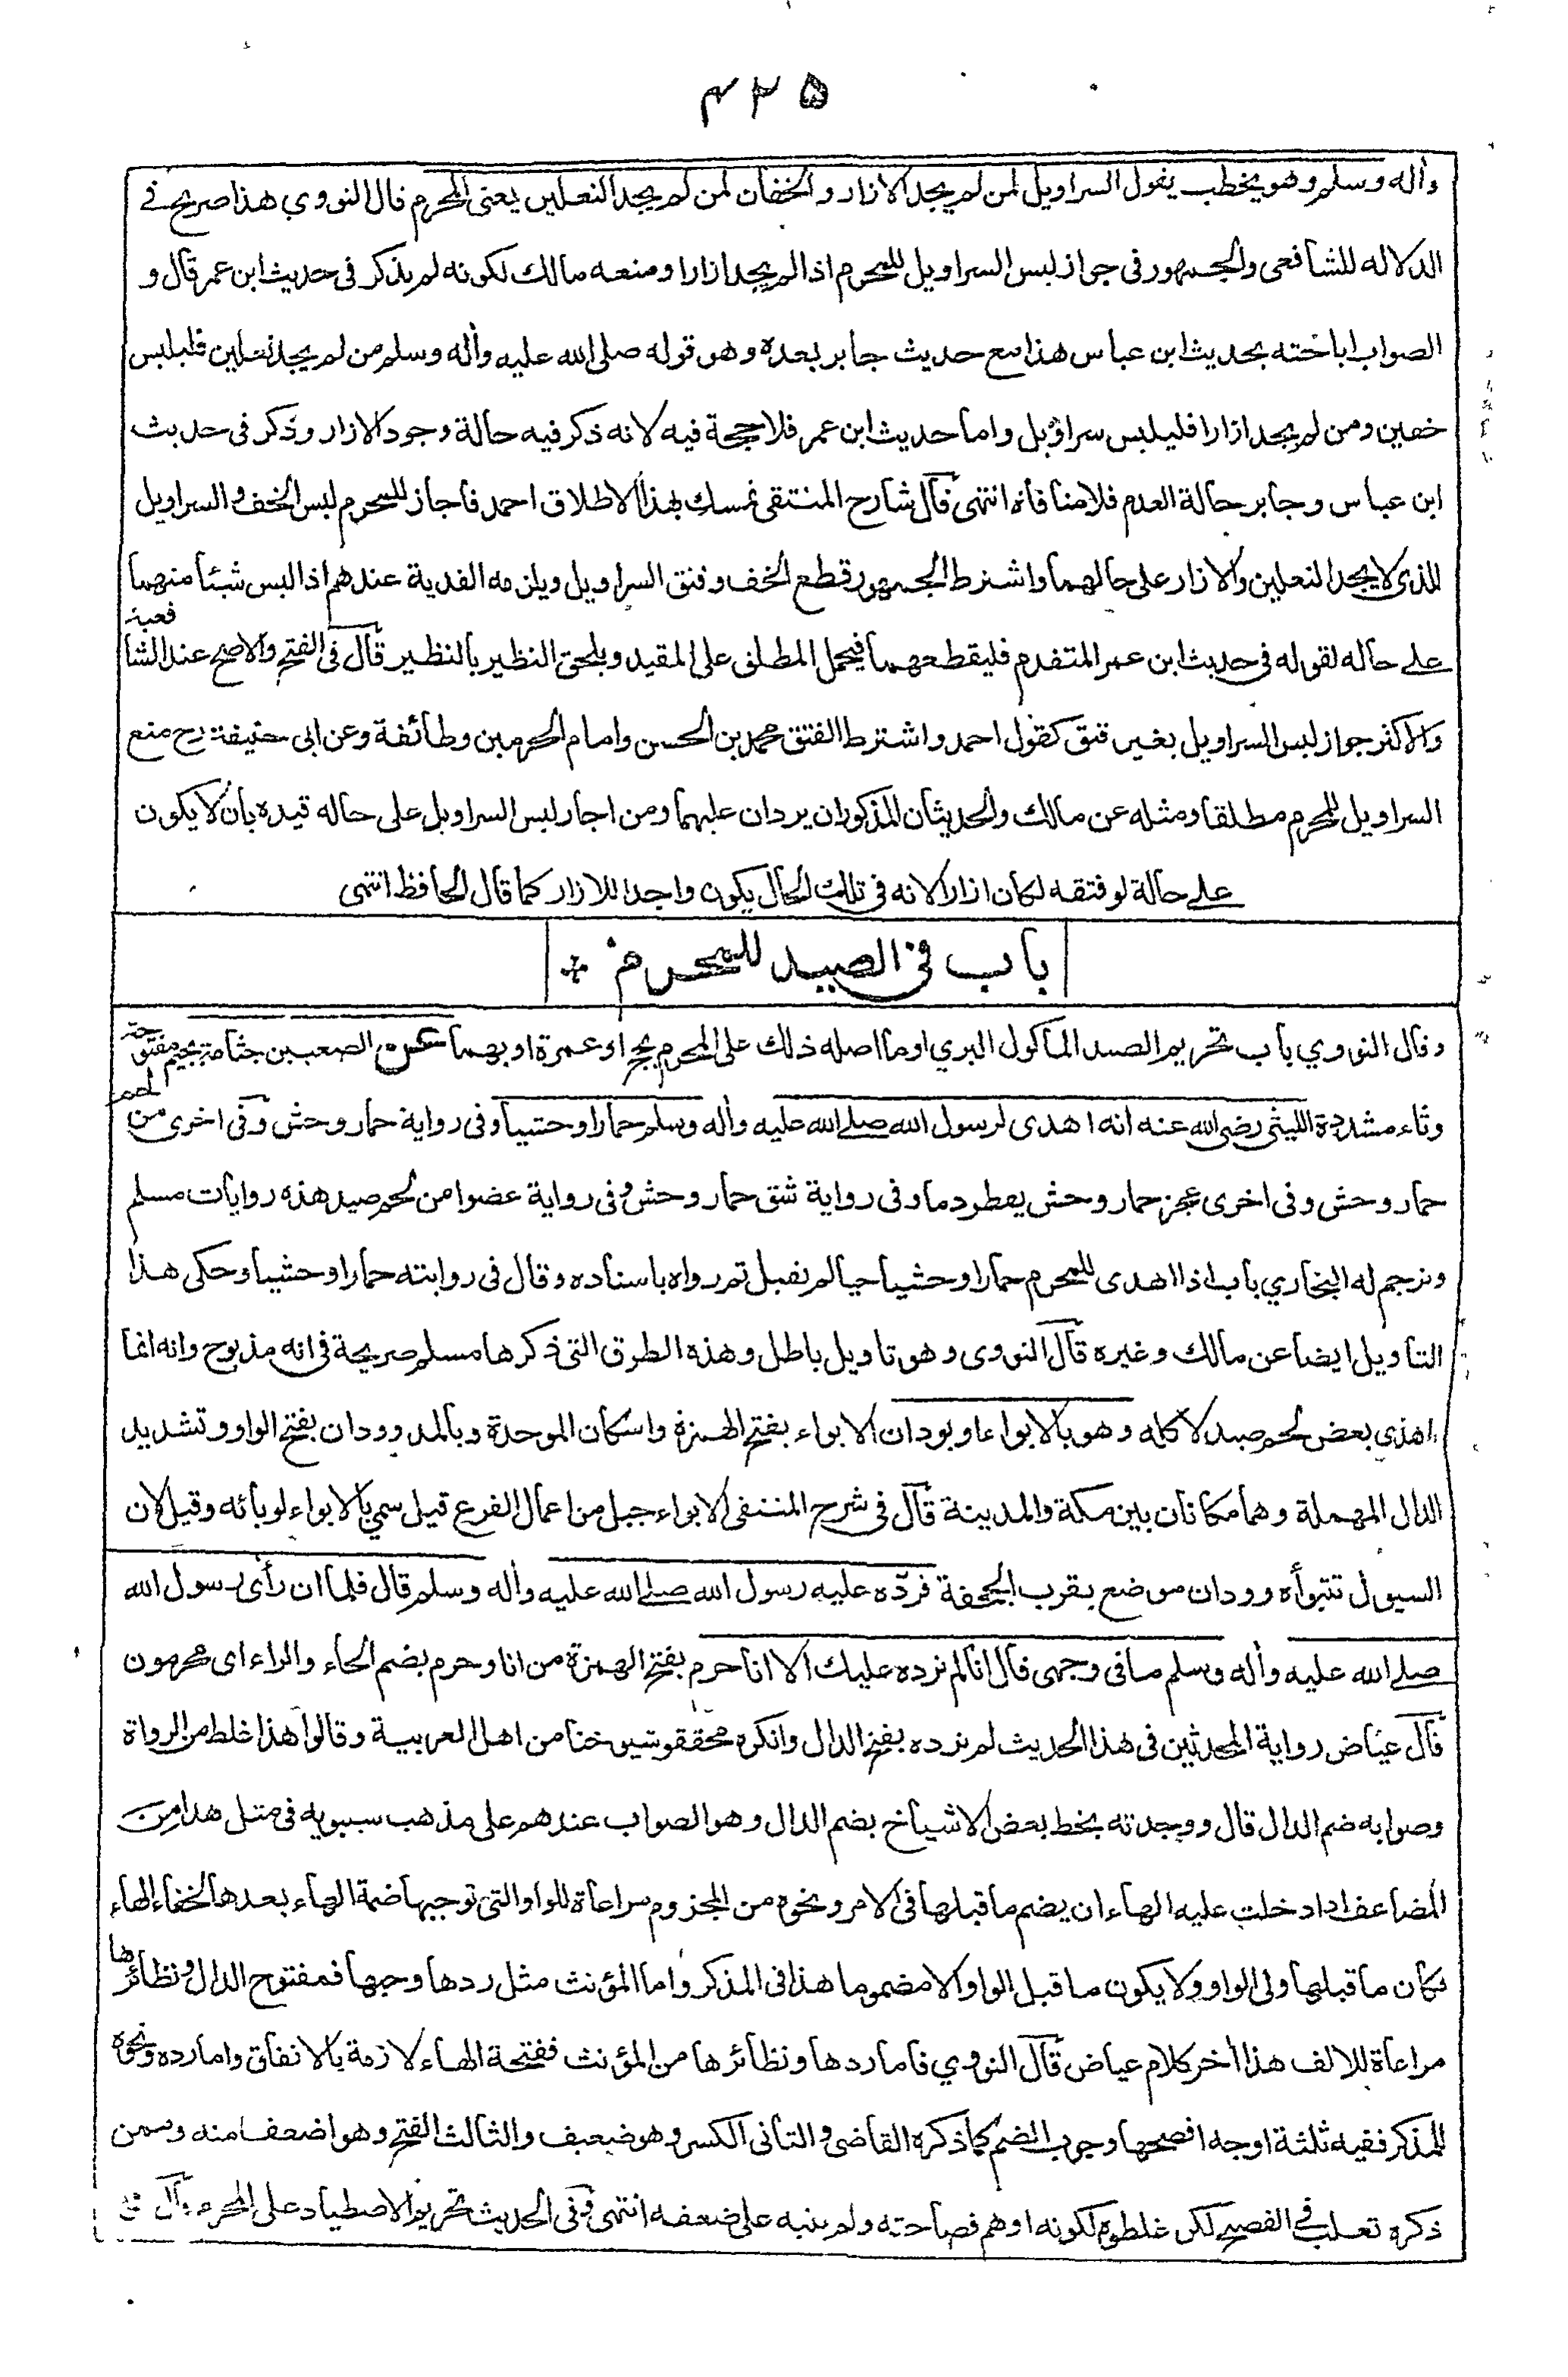 ۴۲۵
وأله وسلم وهو يخطب يقول السراويل لمن لم يجد الازار والخفان لمن لم يجد النعلين يعنى المحرم قال النووي هذا صريح فى
الدلاله للشافعى والجمهور فى جواز لبس السراويل للمحرم اذا لم يجد ازارا ومنعه مالك لكونه لم يذكر فى حديث ابن عمر قال و
الصواب اباحته بحديث ابن عباس هذا مع حديث جابر بعده وهو قوله صلى الله عليه وأله وسلم من لم يجد نعلين فليلبس
خفين ومن لم يجد ازارا فليلبس سراويل واما حديث ابن عمر فلا حجة فيه لانه ذكر فيه حالة وجود الازار وذكر فى حديث
ابن عباس وجابر حالة العدم فلا منافاة انتهى قال شارح المنتقى تمسك بهذا الاطلاق احمد فاجاز للمحرم لبس الخف والسراويل
للذى لا يجد النعلين والازار على حالهما واشترط الجمهور قطع الخف وفتق السراويل ويلزمه الفدية عندهم اذا لبس شيئا منهما
على حاله لقوله فى حديث ابن عمر المتقدم فليقطعهما فيحمل المطلق على المقيد ويلحق النظير بالنظير قال فى الفتح والاصح عند الشافعية
والاكثر جواز لبس السراويل بغير فتق كقول احمد واشترط الفتق محمد بن الحسن وامام الحرمين وطائفة وعن ابى حنيفة رح منع
السراويل للمحرم مطلقا ومثله عن مالك والحديثان المذكوران يردان عليهما ومن اجاز لبس السراويل على حاله قيده بان لا يكون
على حالة لو فتقه لكان ازارا لانه فى تلك الحال يكون واجدا للازار كما قال الحافظ انتهى
باب فى الصيد للمحرم
وقال النووي باب تحريم الصيد الماكول البري او ما اصله ذلك على المحرم بحج او عمرة او بهما عن الصعب بن جثامة بجيم مفتوحة
وثاء مشددة الليثى رضى الله عنه انه اهدى لرسول الله صلى الله عليه وأله وسلم حمارا وحشيا وفى رواية حمار وحش وفى اخرى من لحم
حمار وحش وفى اخرى عجز حمار وحش يقطر دما وفى رواية شق حمار وحش وفى رواية عضوا من لحم صيد هذه روايات مسلم
وترجم له البخاري باب اذا اهدى للمحرم حمارا وحشيا حيا لم يقبل ثم رواه باسناده وقال فى روايته حمارا وحشيا وحكى هذا
التاويل ايضا عن مالك وغيره قال النووى وهو تاويل باطل وهذه الطرق التى ذكرها مسلم صريحة فى انه مذبوح وانه انما
اهدى بعض لحم صيد لا كله وهو بالابواء او بودان الابواء بفتح الهمزة واسكان الموحدة وبالمد وودان بفتح الواو وتشديد
الدال المهملة وهما مكانان بين مكة والمدينة قال فى شرح المنتقى الابواء جبل من اعمال الفرع قيل سمي بالابواء لوبائه وقيل لان
السيول تتبوأه وودان موضع بقرب الجحفة فردّه عليه رسول الله صلى الله عليه وأله وسلم قال فلما ان رأى رسول الله
صلى الله عليه وأله وسلم ما فى وجهى قال انا لم نرده عليك الا انا حرم بفتح الهمزة من انا وحرم بضم الحاء والراء اى محرمون
قال عياض رواية المحدثين فى هذا الحديث لم نرده بفتح الدال وانكره محققو شيوخنا من اهل العربية وقالوا هذا غلط من الرواة
وصوابه ضم الدال قال ووجدته بخط بعض الاشياخ بضم الدال وهو الصواب عندهم على مذهب سيبويه فى مثل هذا من
المضاعف اذا دخلت عليه الهاء ان يضم ما قبلها فى الامر ونحوه من المجزوم مراعاة للواو التى توجبها ضمة الهاء بعدها لخفاء الهاء
فكان ما قبلها ولى الواو ولا يكون ما قبل الواو الا مضموما هذا فى المذكر واما المؤنث مثل ردها وجبها فمفتوح الدال ونظائرها
مراعاة للالف هذا أخر كلام عياض قال النووي فاما ردها ونظائرها من المؤنث ففتحة الهاء لازمة بالاتفاق واما رده ونحوه
للمذكر ففيه ثلثة اوجه افصحها وجوب الضم كما ذكره القاضى والثانى الكسر وهو ضعيف والثالث الفتح وهو اضعف منه وممن
ذكره ثعلب فى الفصيح لكن غلطوه لكونه اوهم فصاحته ولم ينبه على ضعفه انتهى وفى الحديث تحريم الاصطياد على المحرم قال